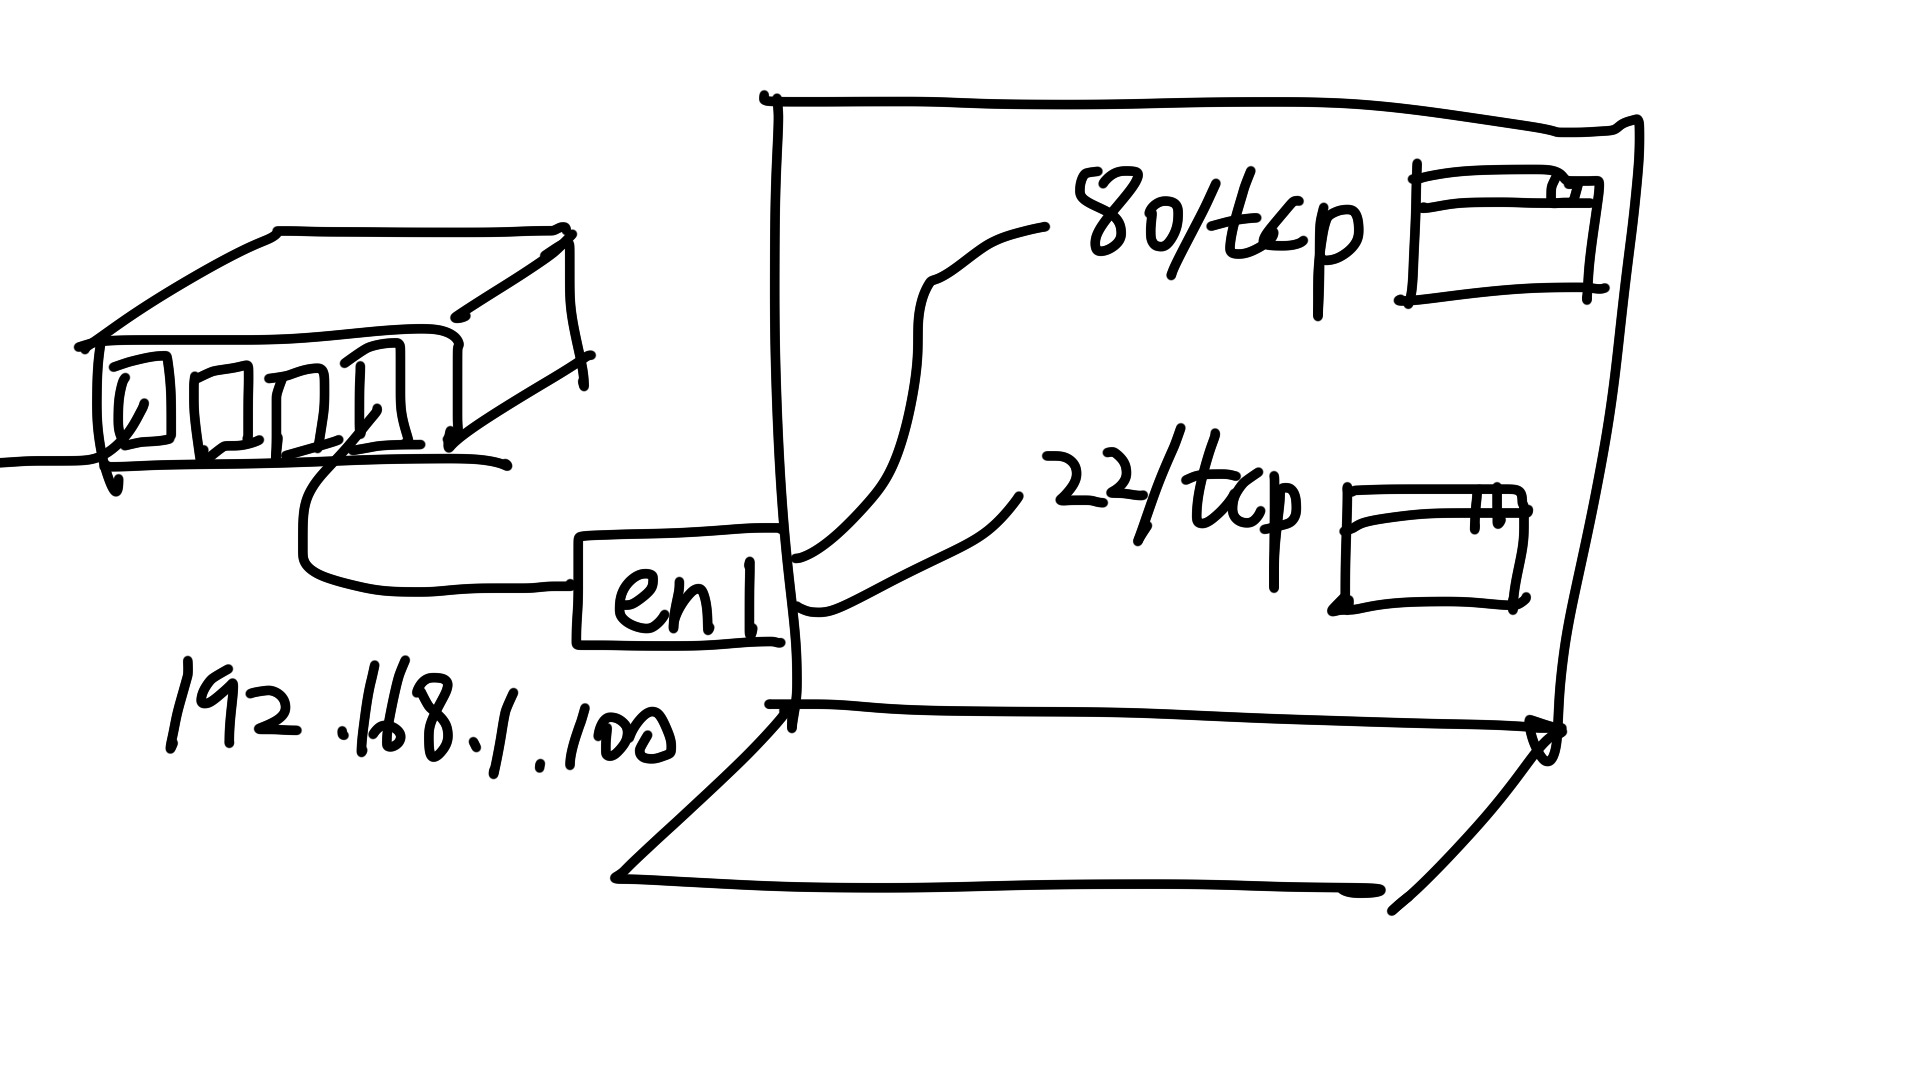 80/tcp
22/tcp
en1
192.168.1.100